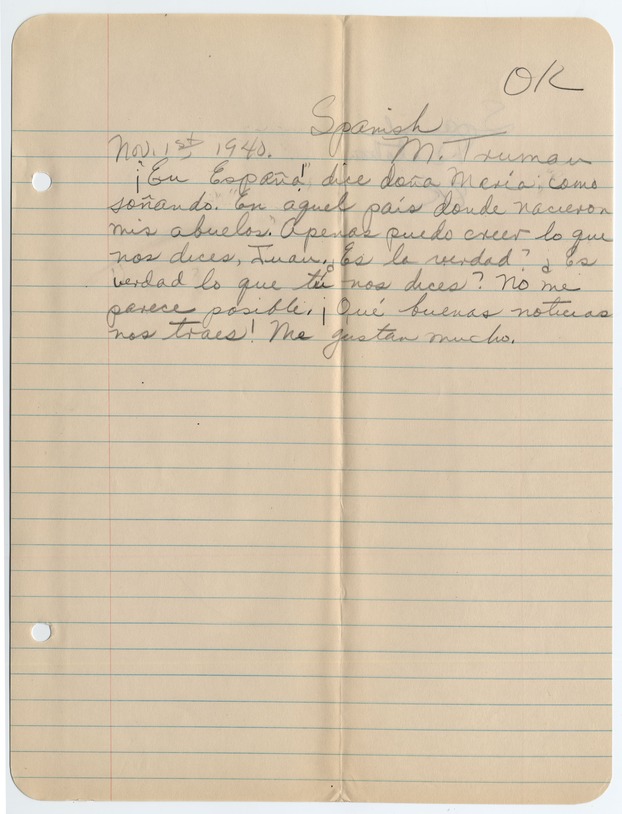 OK
Spanish
Nov. 1st 1940. M. Truman
¡En España!" dice doña María como
soñando. "En aquel país donde nacieron
mis abuelos." Apenas puedo creer lo que
nos dices, Juan. ¿Es la verdad? ¿Es
verdad lo que tú nos dices? No me
parece posible. ¡Qué buenas noticias
nos traes! Me gustan mucho.